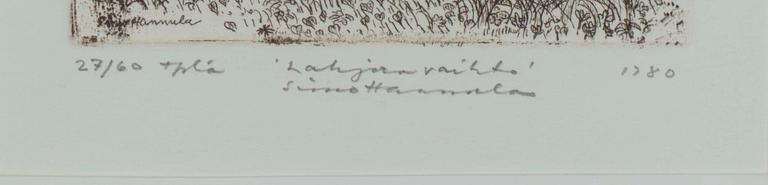 Simo Hannula
27/60 tpla 'Lahjan vaihto' 1980
Simo Hannula